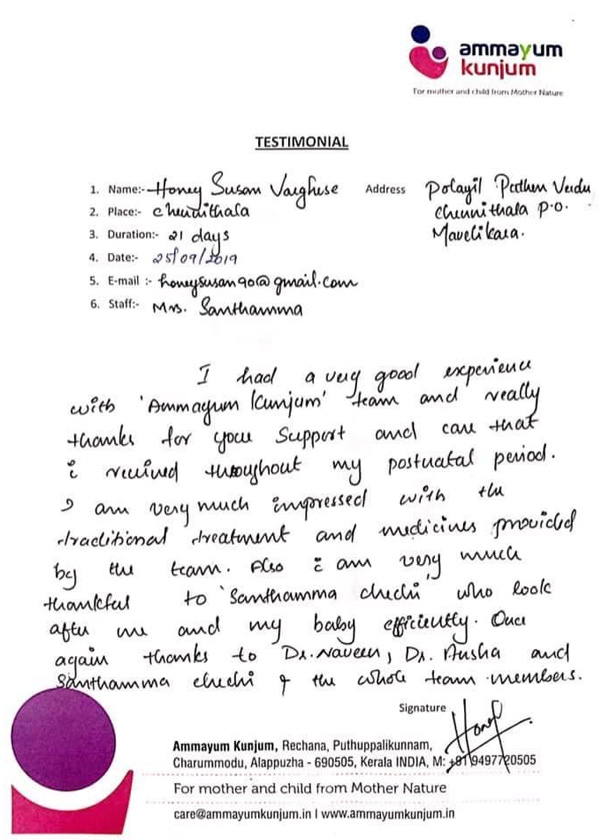 ammayum
kunjum
For mother and child from Mother Nature
TESTIMONIAL
1. Name:- Honey Susan Varghese Address Polayil Puthen Veedu
2. Place:- Chennithala Chennithala P.O.
3. Duration:- 21 days Mavelikara.
4. Date:- 25/09/2019
5. E-mail :- honeysusan90@gmail.com
6. Staff:- Mrs. Santhamma
I had a very good experience
with 'Ammayum Kunjum' team and really
thanks for your support and care that
i received throughout my postnatal period.
I am very much impressed with the
traditional treatment and medicines provided
by the team. Also i am very much
thankful to 'Santhamma chechi' who look
after me and my baby efficiently. Once
again thanks to Dr. Naveen, Dr. Ausha and
Santhamma chechi & the whole team members.
Signature
Ammayum Kunjum, Rechana, Puthuppalikunnam,
Charummodu, Alappuzha - 690505, Kerala INDIA, M: +91 9497720505
For mother and child from Mother Nature
care@ammayumkunjum.in I www.ammayumkunjum.in